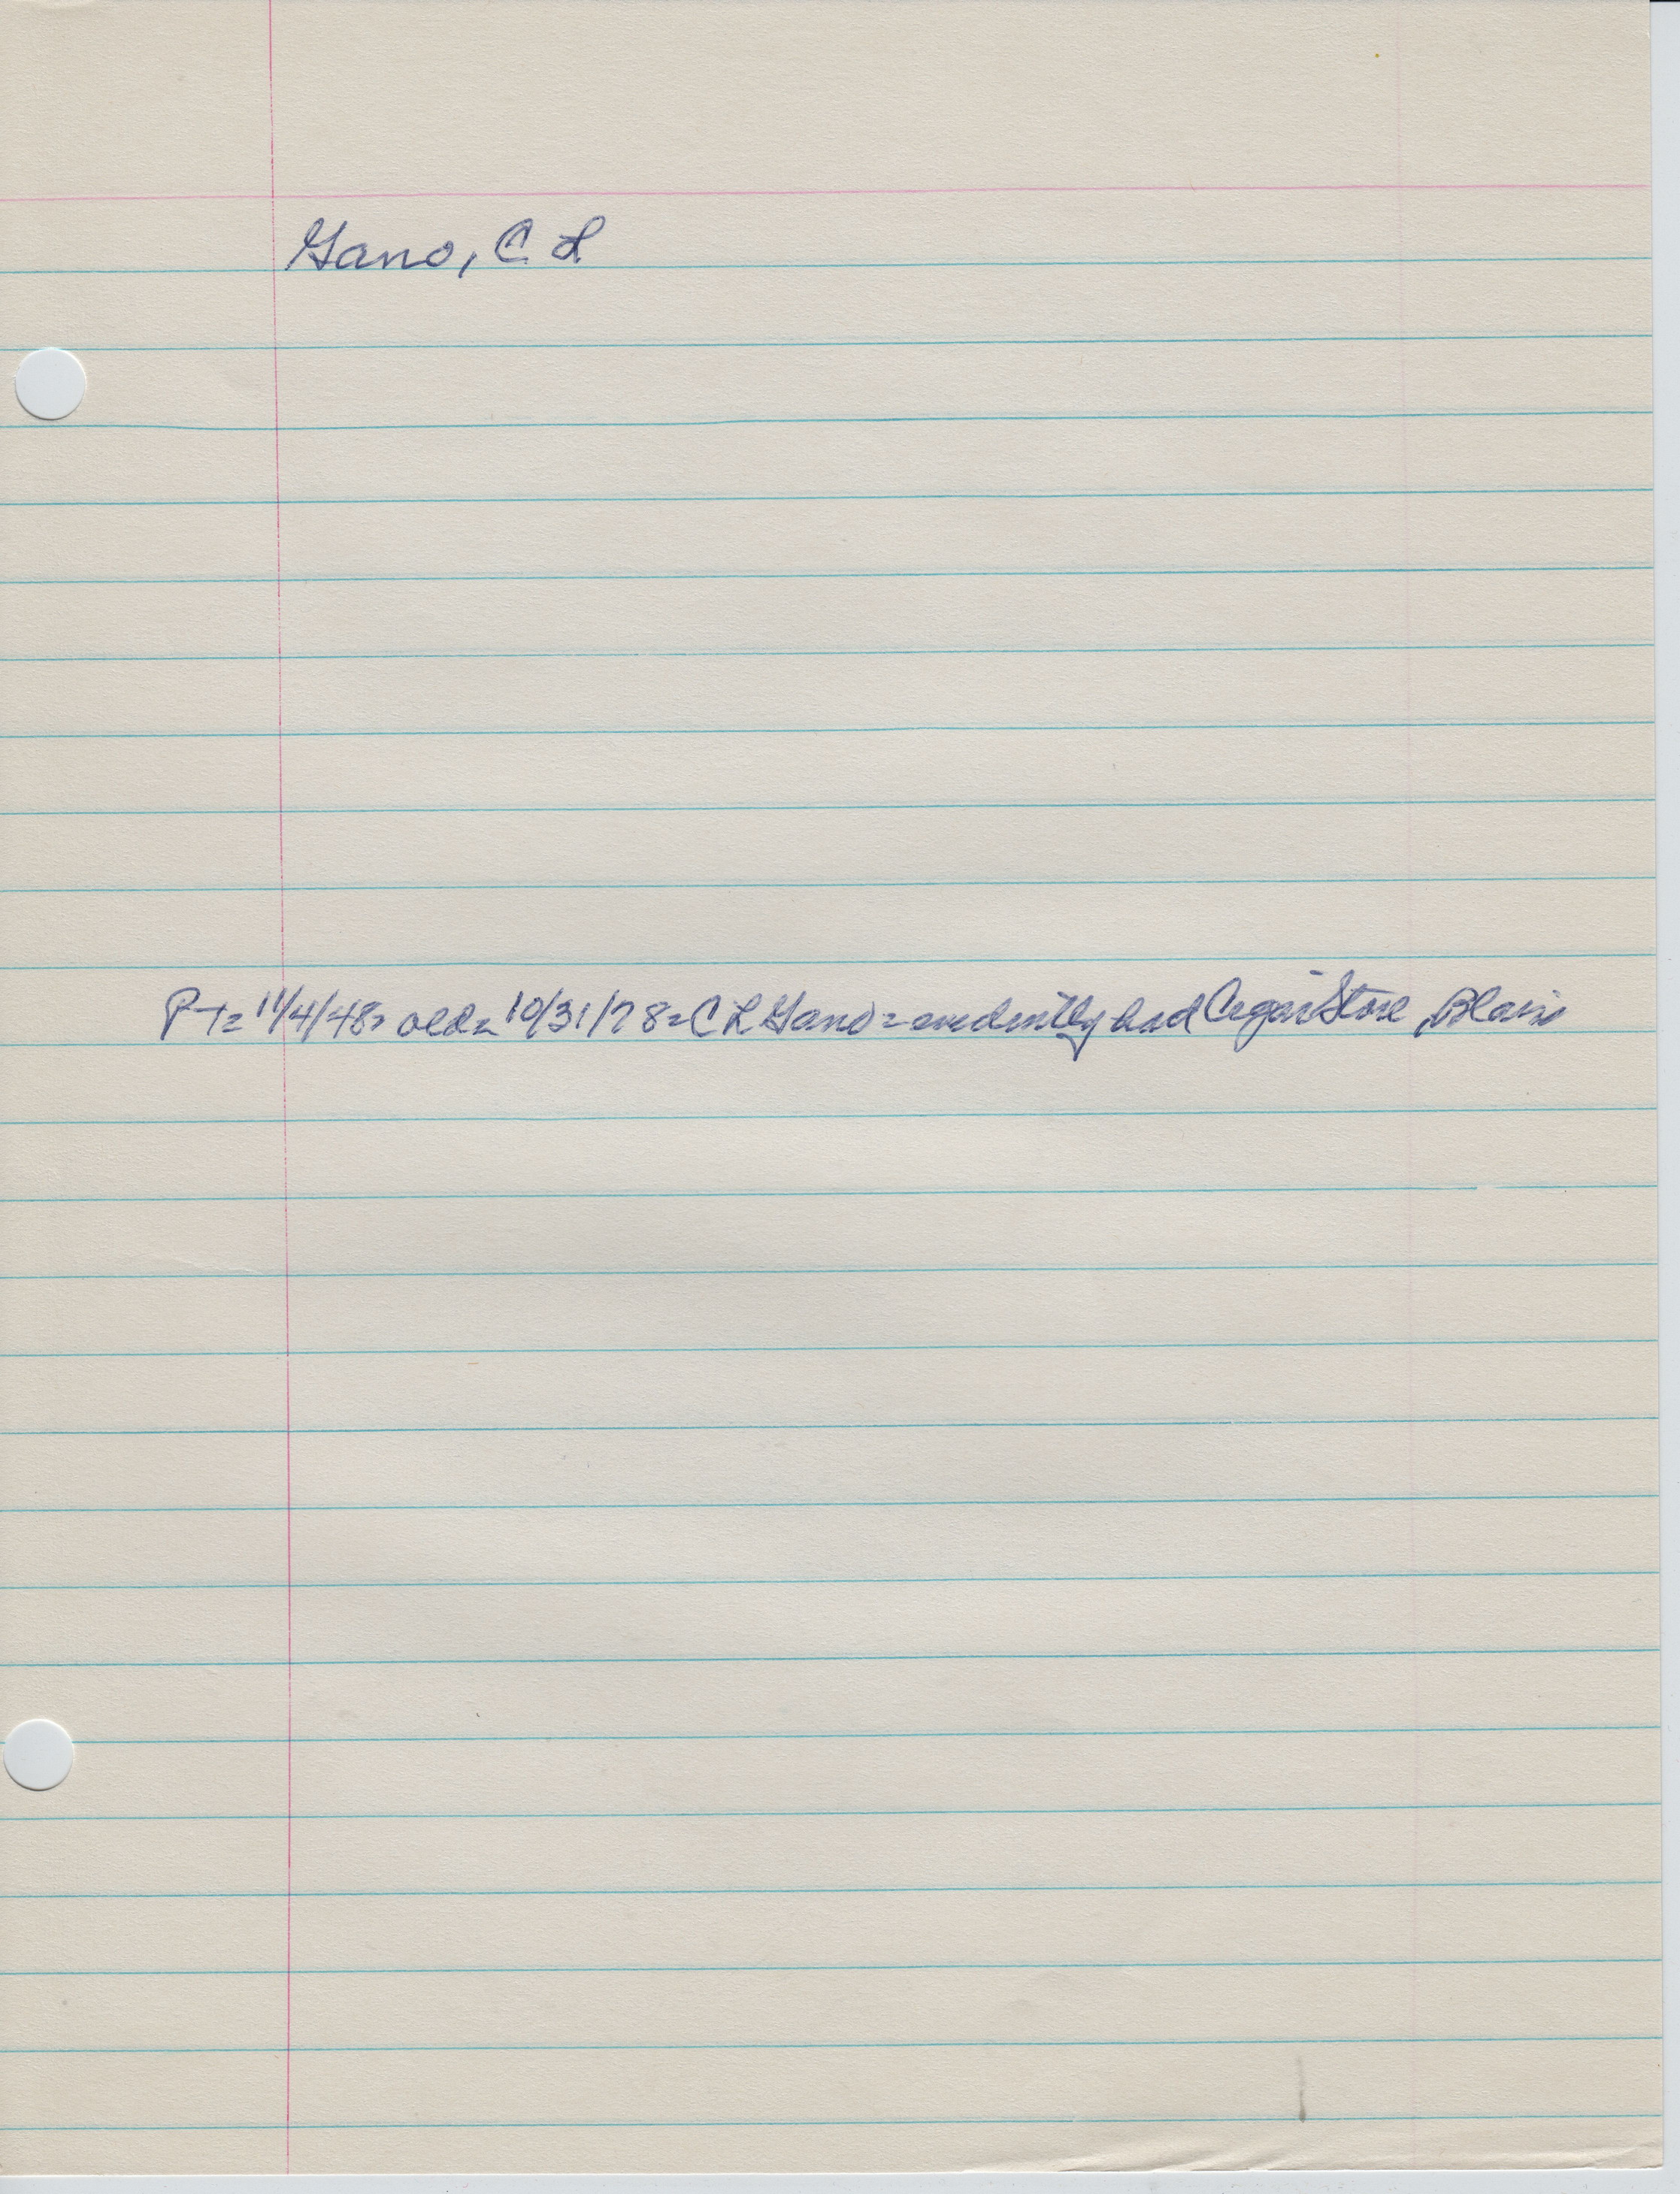 Gano, C L
PT= 11/4/48= old= 10/31/78= C L Gano = evedintly had Cegar Store, Blair